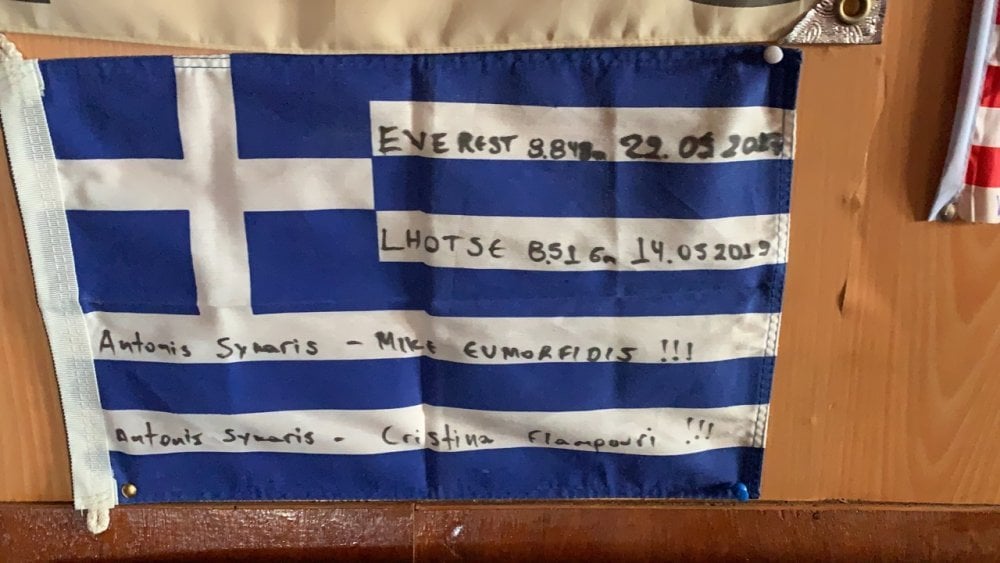 EVEREST 8.848m 22.05
LHOTSE 8.516m 14.05 2019
Antonis Symaris - MIKE EUMORFIDIS !!!
Antonis Symaris - Cristina Flampouri !!!